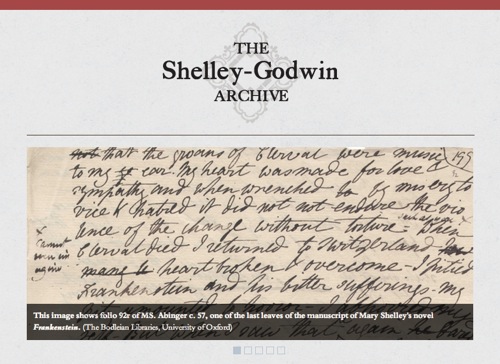 THE
Shelley-Godwin
ARCHIVE
not that the groans of Clerval were music 199
to my ear. My heart was made for love &
sympathy and when wrenched to by misery to
vice & hatred it did not not endure the vio
lence of the change without torture. When
Clerval died I returned to Switzerland
heart broken & overcome – I pitied
Frankenstein and his bitter sufferings – My
This image shows folio 92r of MS. Abinger c. 57, one of the last leaves of the manuscript of Mary Shelley's novel
Frankenstein. (The Bodleian Libraries, University of Oxford)